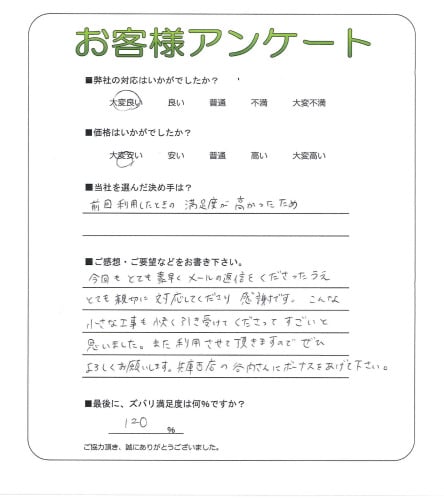 お客様アンケート
■弊社の対応はいかがでしたか?
大変良い 良い 普通 不満 大変不満
■価格はいかがでしたか?
大変安い 安い 普通 高い 大変高い
■当社を選んだ決め手は?
前回利用したときの 満足度が 高かったため
■ご感想・ご要望などをお書き下さい。
今回も とても 素早く メールの返信を くださったうえ
とても 親切に 対応してくださり 感謝です。 こんな
小さな工事も 快く引き受けて くださって すごいと
思いました。また 利用させて 頂きますので ぜひ
よろしくお願いします。兵庫店の 谷内さんにボーナスをあげて下さい。
■最後に、ズバリ満足度は何%ですか?
120 %
ご協力頂き、誠にありがとうございました。